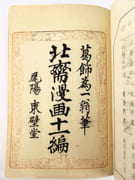 葛飾為一翁筆
北齋漫画十一編
尾陽 東壁堂